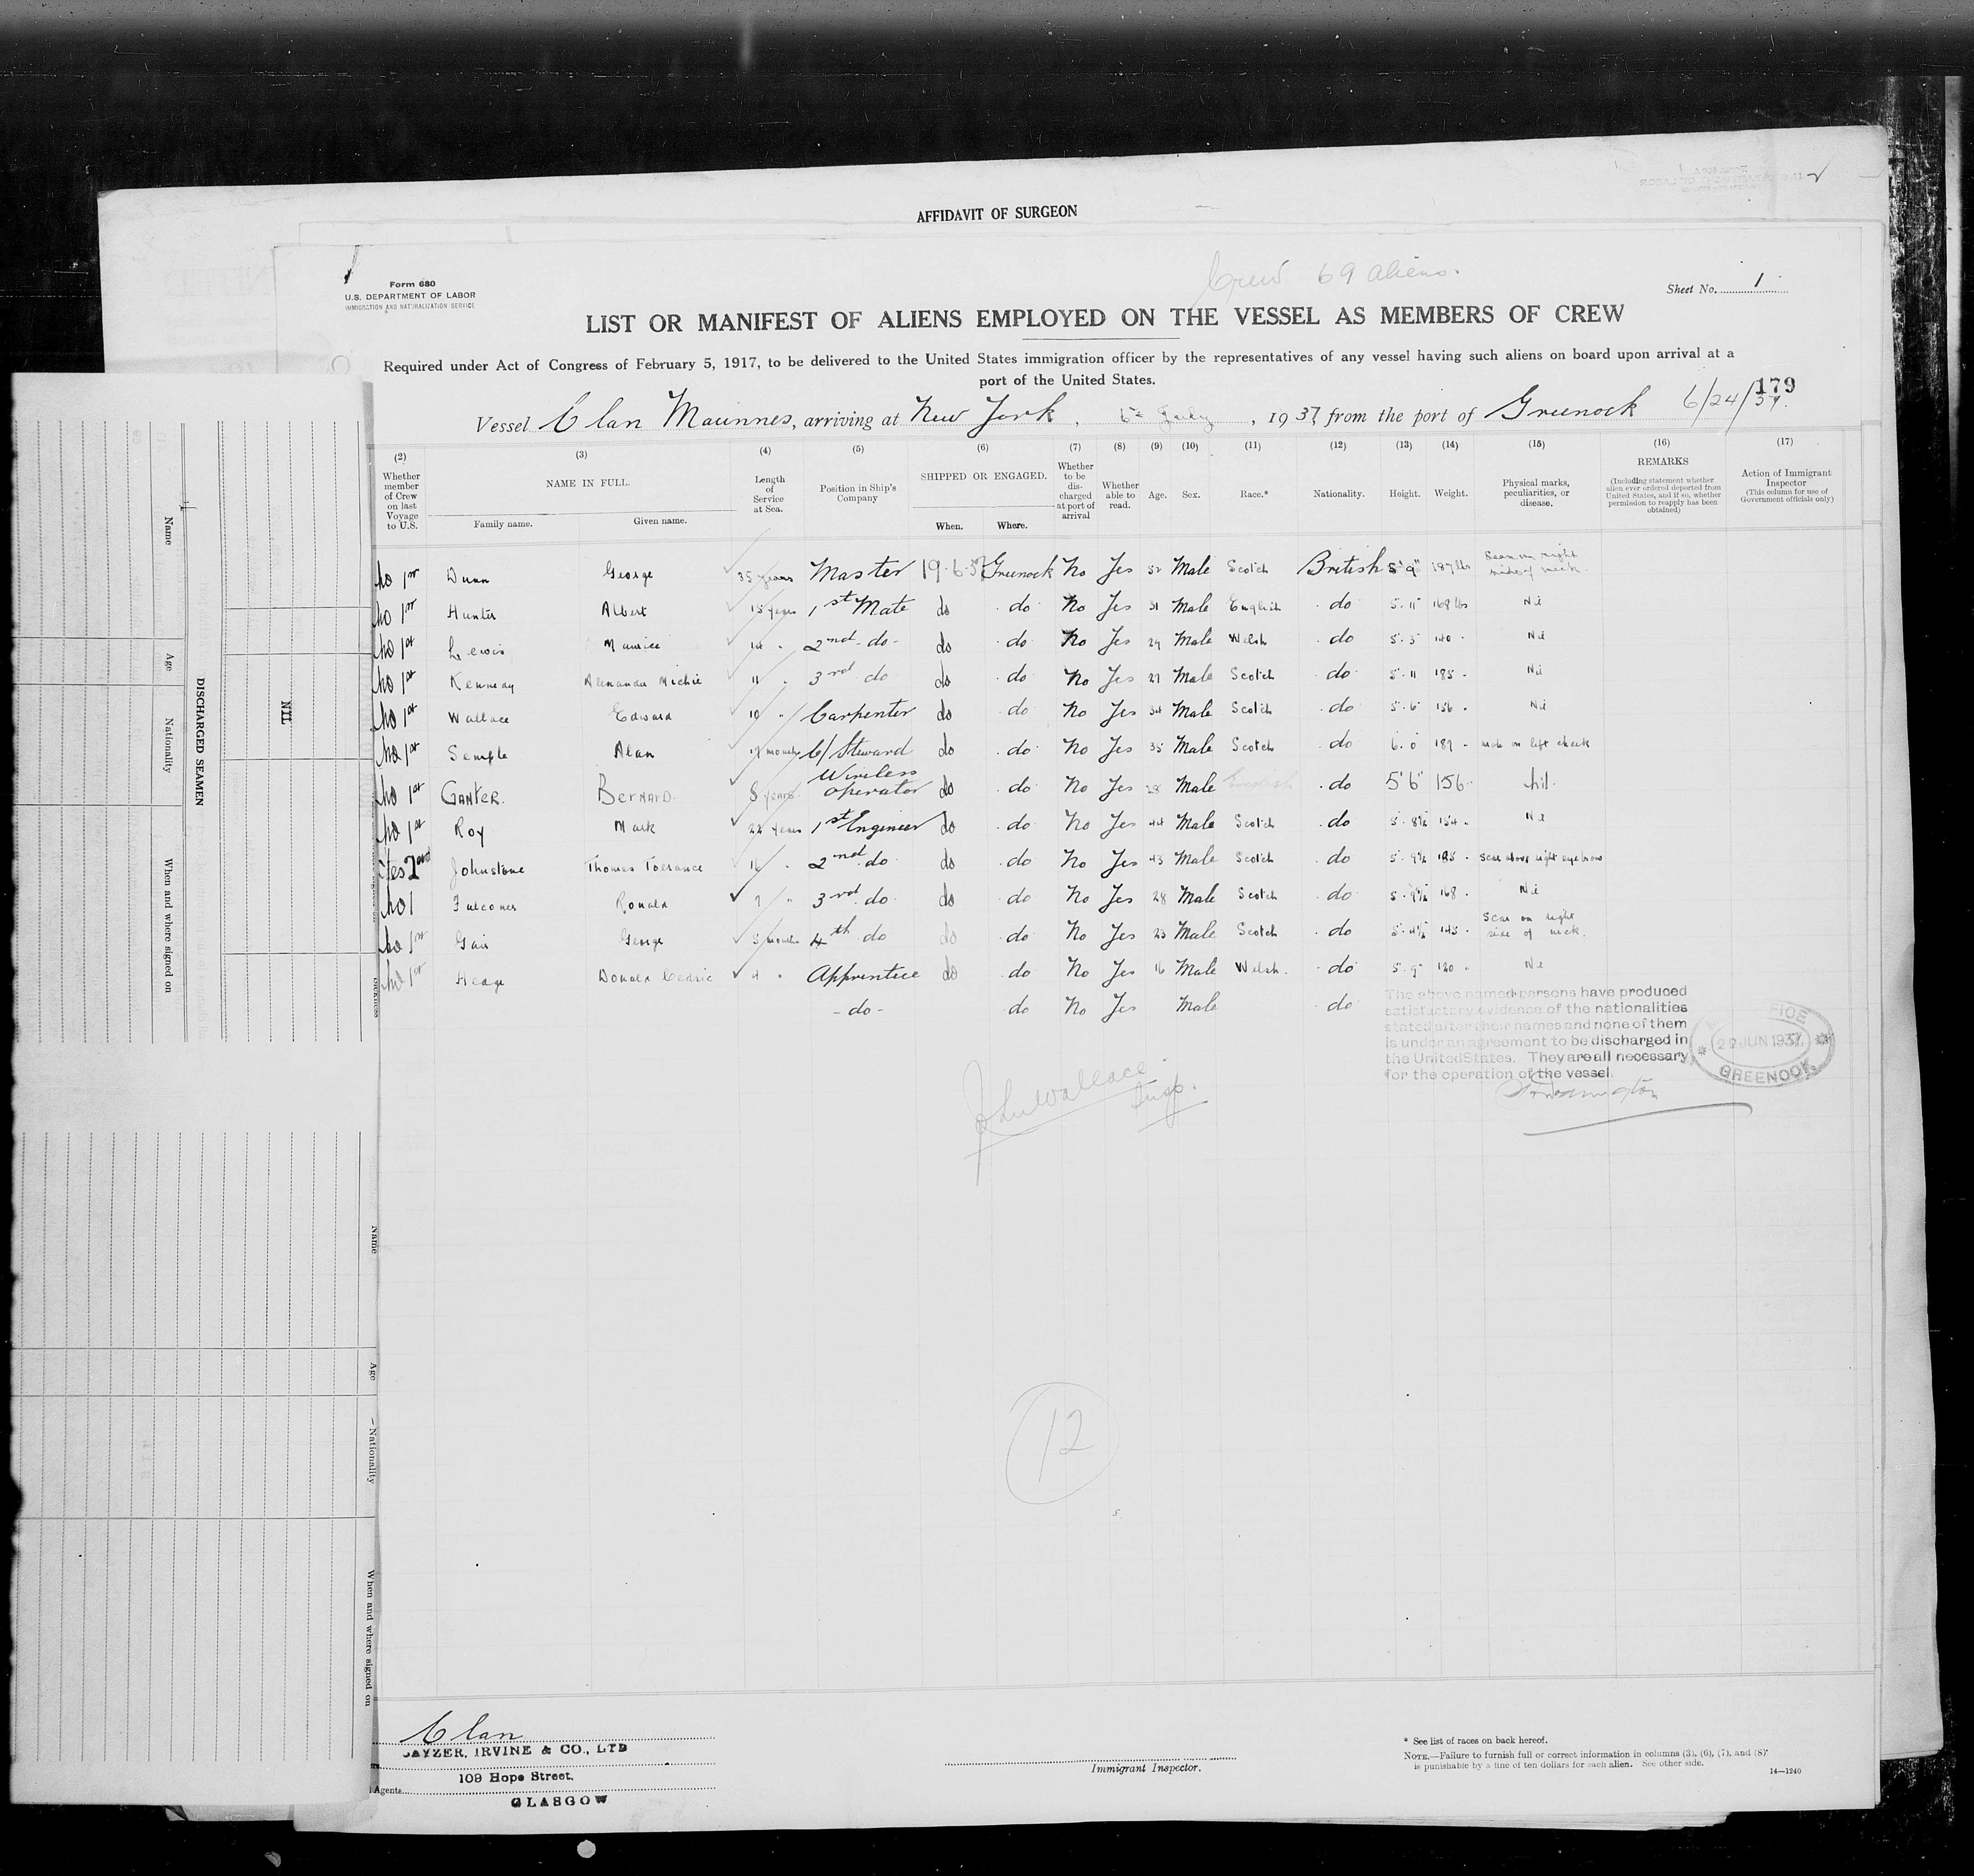 AFFIDAVIT OF SURGEON
Crew 69 aliens.
Form 680
U.S. DEPARTMENT OF LABOR
IMMIGRATION AND NATURALIZATION SERVICE
Sheet No. 1
LIST OR MANIFEST OF ALIENS EMPLOYED ON THE VESSEL AS MEMBERS OF CREW
Required under Act of Congress of February 5, 1917, to be delivered to the United States immigration officer by the representatives of any vessel having such aliens on board upon arrival at a
port of the United States.
179
Vessel Clan Macinnes, arriving at New York, 6th July, 1937, from the port of Greenock 6/24/37.
(2) (3) (4) (5) (6) (7) (8) (9) (10) (11) (12) (13) (14) (15) (16) (17)
Whether member of Crew on last Voyage to U.S. NAME IN FULL. Family name. Given name. Length of Service at Sea. Position in Ship's Company SHIPPED OR ENGAGED. When. Where. Whether to be discharged at port of arrival Whether able to read. Age. Sex. Race.* Nationality. Height. Weight. Physical marks, peculiarities, or disease. REMARKS (Including statement whether alien ever ordered deported from United States, and if so, whether permission to reapply has been obtained) Action of Immigrant Inspector (This column for use of Government officials only)
No 1st Dunn George 35 years Master 19.6.37 Greenock No Yes 52 Male Scotch British 5'9" 187 lbs Scar on right side of neck.
No 1st Hunter Albert 15 years 1st Mate do do No Yes 31 Male English do 5.11 168 lbs Nil
No 1st Lewis Maurice 14 " 2nd do do do No Yes 29 Male Welsh do 5.5 140 Nil
No 1st Kennedy Alexander Michie 11 " 3rd do do do No Yes 27 Male Scotch do 5.11 185 Nil
No 1st Wallace Edward 10 " Carpenter do do No Yes 34 Male Scotch do 5.6 156 Nil
No 1st Semple Alan 19 months C/Steward do do No Yes 35 Male Scotch do 6.0 189 mole on left cheek
No 1st GANTER. BERNARD. 8 years Wireless operator do do No Yes 28 Male English do 5'6" 156 Nil.
No 1st Roy Mark 22 years 1st Engineer do do No Yes 44 Male Scotch do 5.8½ 154 Nil
Yes 2nd Johnstone Thomas Torrance 16 " 2nd do do do No Yes 43 Male Scotch do 5.9½ 185 Scar above right eyebrow
No 1 Falconer Ronald 7 " 3rd do do do No Yes 28 Male Scotch do 5.9½ 168 Nil
No 1st Gair George 3 months 4th do do do No Yes 23 Male Scotch do 5.4½ 145 Scar on right side of neck.
No 1st Hedge Donald Cedric 4 " Apprentice do do No Yes 16 Male Welsh do 5.9 120 Nil
-do- do No Yes Male do
The above named persons have produced
satisfactory evidence of the nationalities
stated after their names and none of them
is under an agreement to be discharged in
the United States. They are all necessary
for the operation of the vessel.
22 JUN 1937
GREENOCK
John Wallace
Insp.
12
Clan
CAYZER, IRVINE & CO., LTD
109 Hope Street.
Agents
GLASGOW
Immigrant Inspector.
* See list of races on back hereof.
NOTE.—Failure to furnish full or correct information in columns (3), (6), (7), and (8)
is punishable by a fine of ten dollars for each alien. See other side.
14—1240
Name
Age
Nationality
When and where signed on
DISCHARGED SEAMEN
NIL
Name
Age
Nationality
When and where signed on